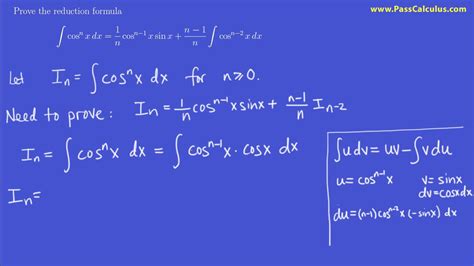 Prove the reduction formula
www.PassCalculus.com
∫ cosⁿ x dx = 1/n cosⁿ⁻¹ x sin x + n−1/n ∫ cosⁿ⁻² x dx
Let Iₙ = ∫ cosⁿx dx for n ≥ 0.
Need to prove: Iₙ = 1/n cosⁿ⁻¹x sinx + n-1/n Iₙ₋₂
Iₙ = ∫ cosⁿx dx = ∫ cosⁿ⁻¹x · cosx dx
Iₙ =
∫udv = uv - ∫vdu
u = cosⁿ⁻¹x v = sinx
dv = cosxdx
du = (n-1)cosⁿ⁻²x (-sinx) dx